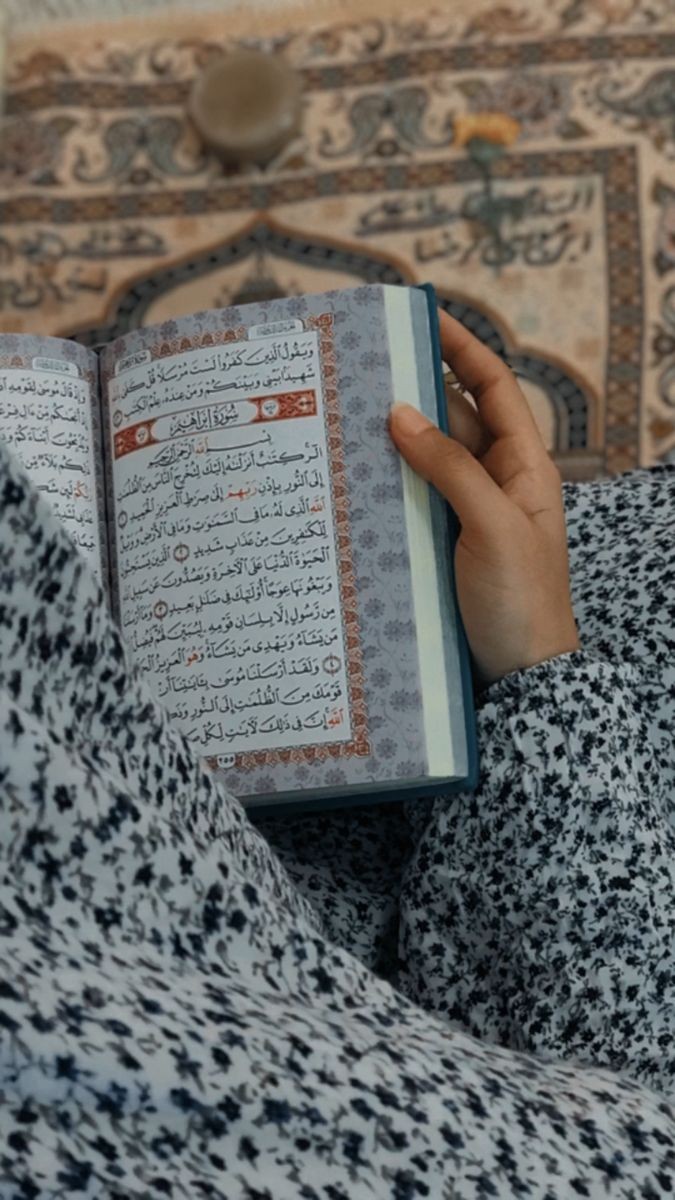 السلام
ابن موسى الرضا
وَيَقُولُ ٱلَّذِينَ كَفَرُوا۟ لَسْتَ مُرْسَلًا قُلْ كَفَىٰ
شَهِيدًۢا بَيْنِى وَبَيْنَكُمْ وَمَنْ عِندَهُۥ عِلْمُ ٱلْكِتَٰبِ
سُورَةُ إِبْرَاهِيمَ
بِسْمِ ٱللَّهِ ٱلرَّحْمَٰنِ ٱلرَّحِيمِ
الٓر كِتَٰبٌ أَنزَلْنَٰهُ إِلَيْكَ لِتُخْرِجَ ٱلنَّاسَ مِنَ ٱلظُّلُمَٰتِ
إِلَى ٱلنُّورِ بِإِذْنِ رَبِّهِمْ إِلَىٰ صِرَٰطِ ٱلْعَزِيزِ ٱلْحَمِيدِ ١
ٱللَّهِ ٱلَّذِى لَهُۥ مَا فِى ٱلسَّمَٰوَٰتِ وَمَا فِى ٱلْأَرْضِ وَوَيْلٌ
لِّلْكَٰفِرِينَ مِنْ عَذَابٍ شَدِيدٍ ٢ ٱلَّذِينَ يَسْتَحِبُّونَ
ٱلْحَيَوٰةَ ٱلدُّنْيَا عَلَى ٱلْءَاخِرَةِ وَيَصُدُّونَ عَن سَبِيلِ ٱللَّهِ
وَيَبْغُونَهَا عِوَجًا أُو۟لَٰٓئِكَ فِى ضَلَٰلٍۭ بَعِيدٍ ٣ وَمَآ أَرْسَلْنَا
مِن رَّسُولٍ إِلَّا بِلِسَانِ قَوْمِهِۦ لِيُبَيِّنَ لَهُمْ فَيُضِلُّ
مَن يَشَآءُ وَيَهْدِى مَن يَشَآءُ وَهُوَ ٱلْعَزِيزُ
٤ وَلَقَدْ أَرْسَلْنَا مُوسَىٰ بِـَٔايَٰتِنَآ أَنْ
قَوْمَكَ مِنَ ٱلظُّلُمَٰتِ إِلَى ٱلنُّورِ
ٱللَّهِ إِنَّ فِى ذَٰلِكَ لَءَايَٰتٍ لِّكُلِّ
٢٥٥
وَإِذْ قَالَ مُوسَىٰ لِقَوْمِهِ
أَنجَىٰكُم مِّنْ ءَالِ
أَبْنَآءَكُمْ
ذَٰلِكُم بَلَآءٌ مِّن
رَبُّكُمْ لَئِن